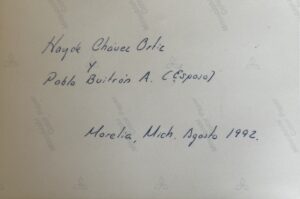 Hayde Chávez Ortiz
y
Pablo Buitrón A. (Esposo)
Morelia, Mich. Agosto 1992.